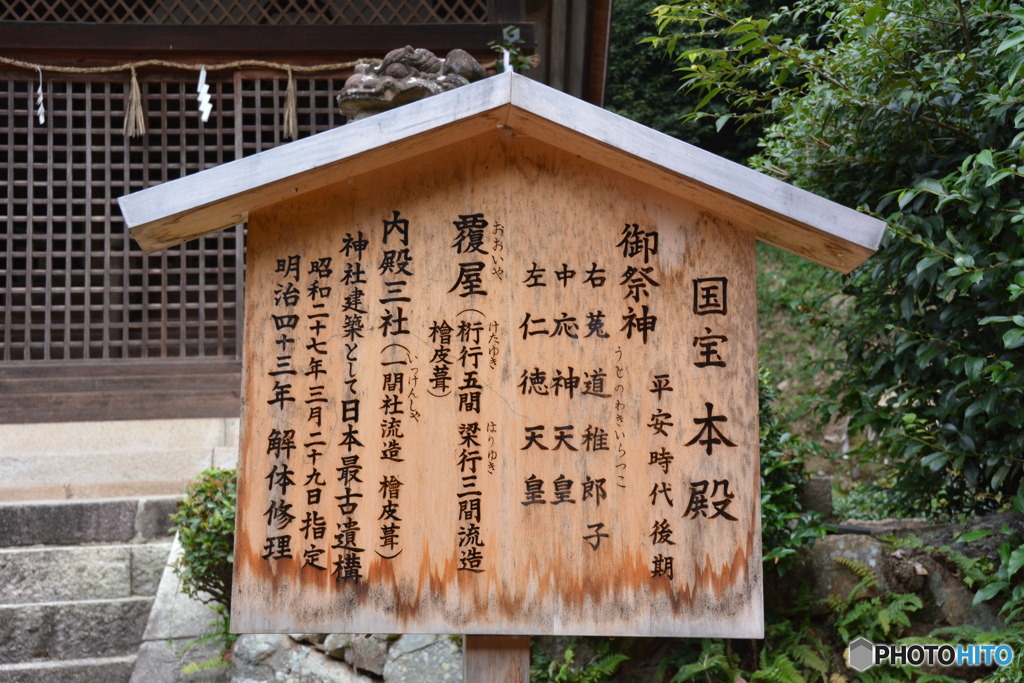 国宝 本殿
平安時代後期
御祭神
右 菟道稚郎子
うとのわきいらつこ
中 応神天皇
左 仁徳天皇
覆屋(桁行五間 梁行三間流造
おおいや
けたゆき
はりゆき
檜皮葺)
内殿三社(一間社流造 檜皮葺)
いっけんしゃ
神社建築として日本最古遺構
昭和二十七年三月二十九日指定
明治四十三年 解体修理
PHOTOHITO